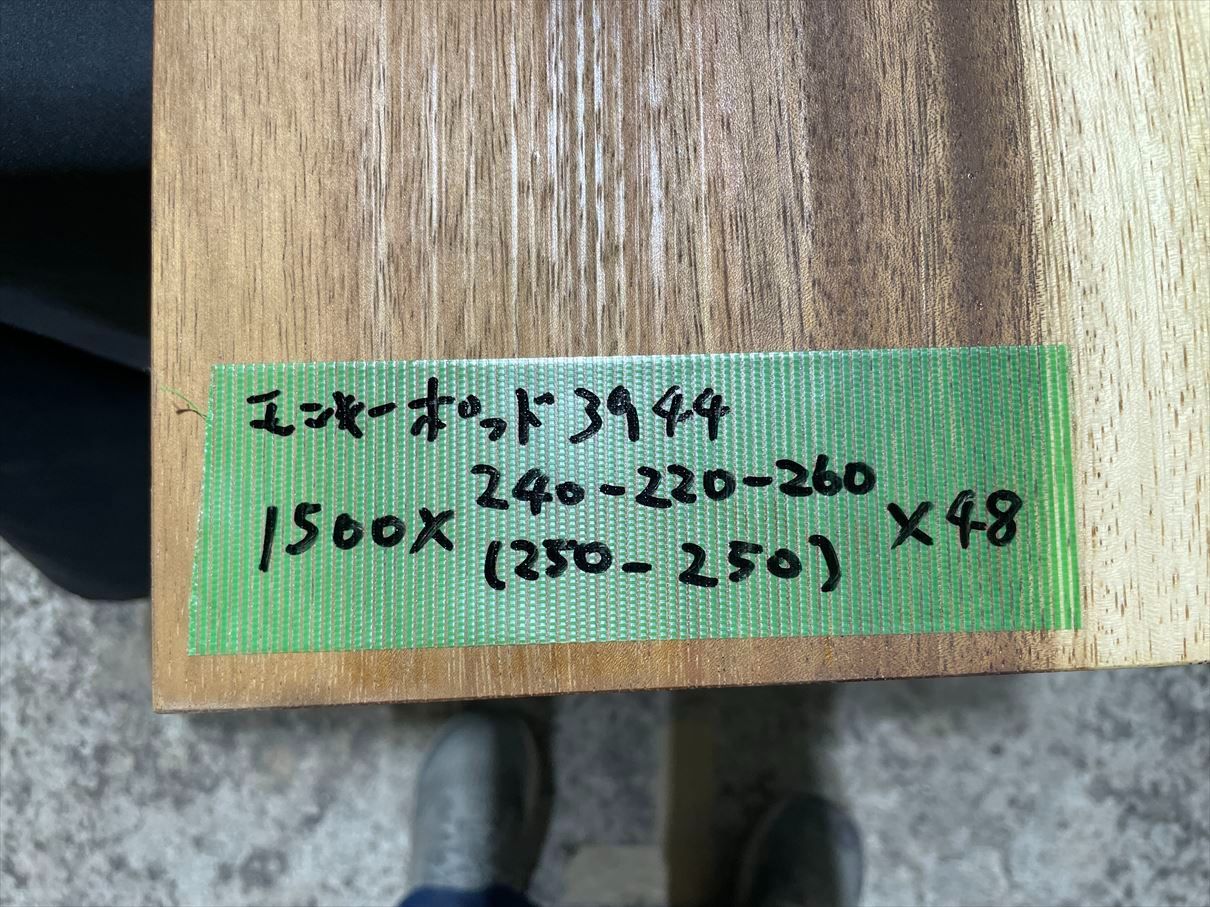 モンキーポッド3944
240-220-260
1500×(250-250)×48